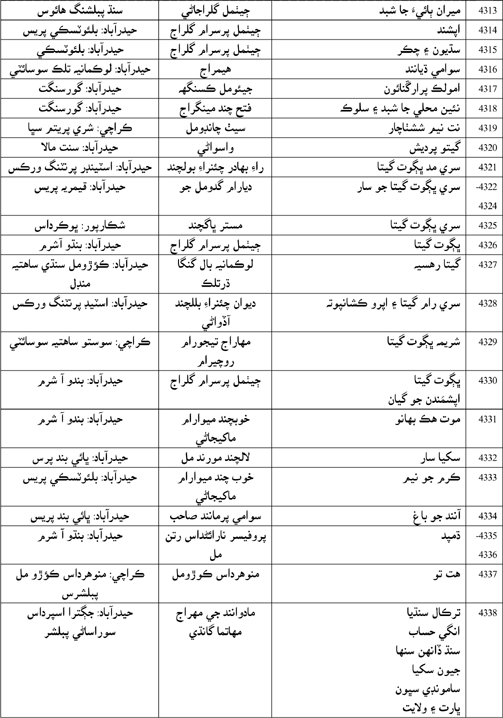 4313 ميران ٻائيءَ جا شبد چيٽمل گلراجاڻي سنڌ پبلشنگ هائوس
4314 اپشند چيٽمل پرسرام گلراج حيدرآباد: بلئوٽسڪي پريس
4315 سڌيون ۽ چڪر چيٽمل پرسرام گلراج حيدرآباد: بلئوٽسڪي
4316 سوامي ڌيانند هيمراج حيدرآباد: لوڪمانيہ تلڪ سوسائٽي
4317 امولڪ پرارگنائون جيئومل ڪسنگهہ حيدرآباد: گورسنگت
4318 نئين محلي جا شبد ۽ سلوڪ فتح چند مينگراج حيدرآباد: گورسنگت
4319 نت نيم ششٽاچار سيٺ چانڊومل ڪراچي: شري پريتم سڀا
4320 گيتو پرديش واسواڻي حيدرآباد: سنت مالا
4321 سري مد ڀڳوت گيتا راءِ بهادر چئنراءِ بولچند حيدرآباد: اسٽينڊر پرنٽنگ ورڪس
4322- سري ڀڳوت گيتا جو سار ديارام گدومل جو حيدرآباد: قيمريہ پريس
4324
4325 سري ڀڳوت گيتا مستر ڀاڳچند شڪارپور: ڀوڪرداس
4326 ڀڳوت گيتا چيٽمل پرسرام گلراج حيدرآباد: بنڌو آشرم
4327 گيتا رهسيہ لوڪمانيہ بال گنگا حيدرآباد: ڪؤڙومل سنڌي ساهتيہ
ڌرتلڪ منڊل
4328 سري رام گيتا ۽ اپرو ڪشانپوتہ ديوان چئنراءِ بللچند حيدرآباد: اسٽيڊ پرنٽنگ ورڪس
آڏواڻي
4329 شريمہ ڀڳوت گيتا مهاراج تيجورام ڪراچي: سوستو ساهتيہ سوسائٽي
روچيرام
4330 ڀڳوت گيتا چيٽمل پرسرام گلراج حيدرآباد: بندو آ شرم
اپشمندن جو گيان
4331 موت هڪ بهانو خوبچند ميوارام حيدرآباد: بندو آ شرم
ماکيجاڻي
4332 سکيا سار لالچند مورند مل حيدرآباد: ڀائي بند پرس
4333 ڪرم جو نيم خوب چند ميوارام حيدرآباد: بلئوٽسڪي پريس
ماکيجاڻي
4334 آنند جو باغ سوامي پرمانند صاحب حيدرآباد: ڀائي بند پريس
4335- ڌمپد پروفيسر نارائڻداس رتن حيدرآباد: بنڌو آ شرم
4336 مل
4337 هت تو منوهرداس ڪوڙومل ڪراچي: منوهرداس ڪؤڙو مل
پبلشرس
4338 ترڪال سنڌيا مادوانند جي مهراج حيدرآباد: جڳترا اسپرداس
انگي حساب مهاتما گانڌي سوراساڻي پبلشر
سنڌ ڏانهن سنها
جيون سکيا
سامونڊي سڀون
ڀارت ۽ ولايت